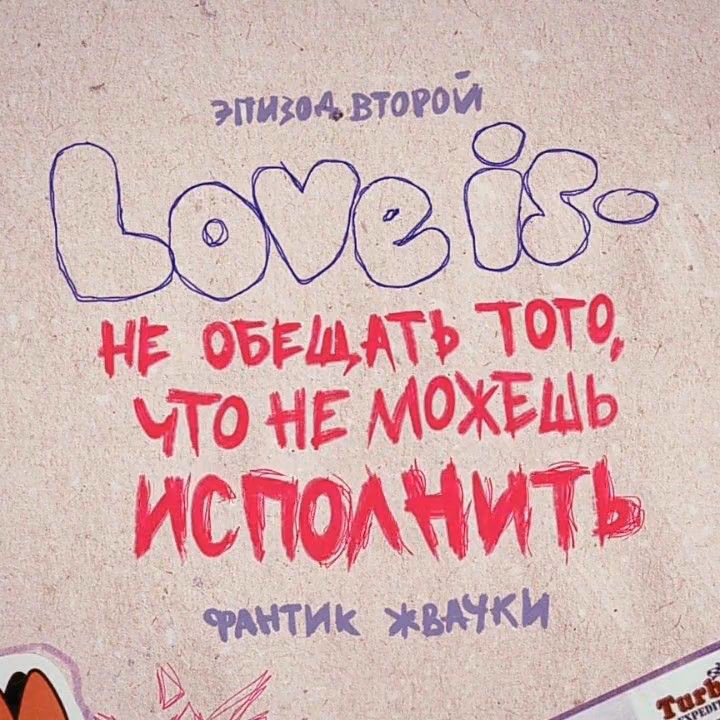 ЭПИЗОД ВТОРОЙ
Love is-
НЕ ОБЕЩАТЬ ТОГО,
ЧТО НЕ МОЖЕШЬ
ИСПОЛНИТЬ
ФАНТИК ЖВАЧКИ